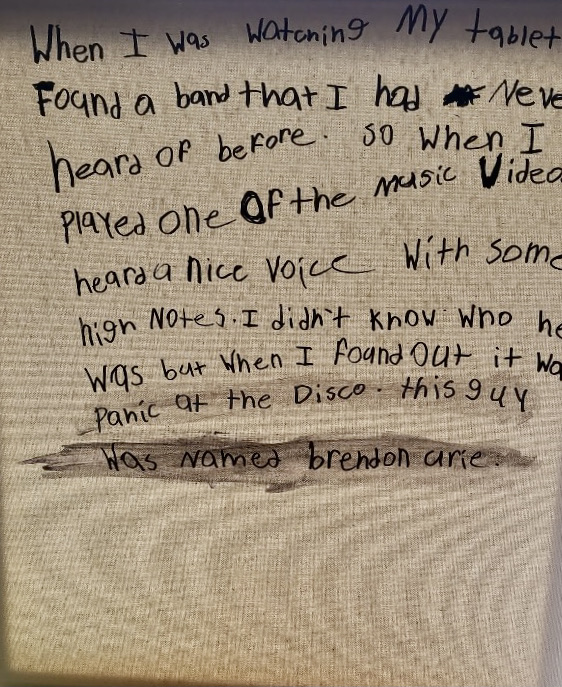 When I was watching My tablet
Found a band that I had Neve
heard of before. so when I
played one of the music Video
heard a nice voice with some
high Notes. I didn't know who he
was but when I found out it wa
Panic at the Disco. this guy
Was Named brendon urie.